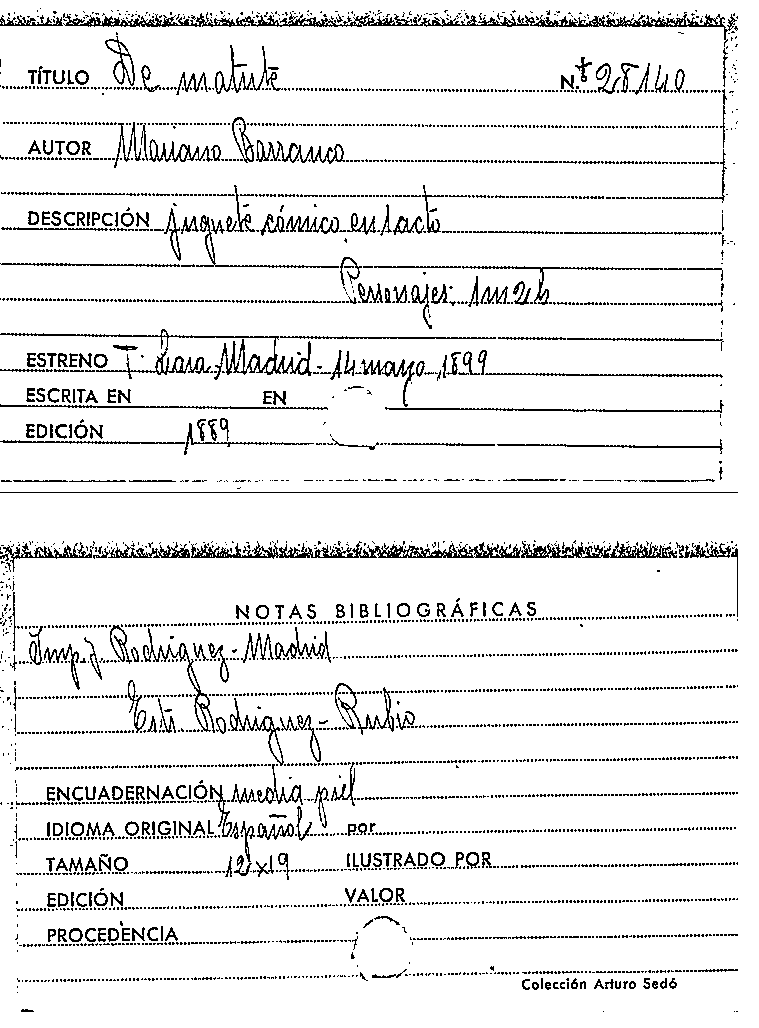 TÍTULO De matute N.º 28140
AUTOR Mariano Barranco
DESCRIPCIÓN juguete cómico en 1 acto
Personajes: 1m 2h
ESTRENO T. Lara, Madrid - 14 mayo 1899
ESCRITA EN EN
EDICIÓN 1889
NOTAS BIBLIOGRÁFICAS
Imp. J. Rodriguez - Madrid
Estr. Rodriguez - Rubio
ENCUADERNACIÓN media piel
IDIOMA ORIGINAL Español por
TAMAÑO 12x19 ILUSTRADO POR
EDICIÓN VALOR
PROCEDENCIA
Colección Arturo Sedó